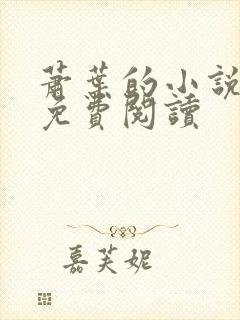 蕭葉的小說
免費閱讀
嘉芙妮